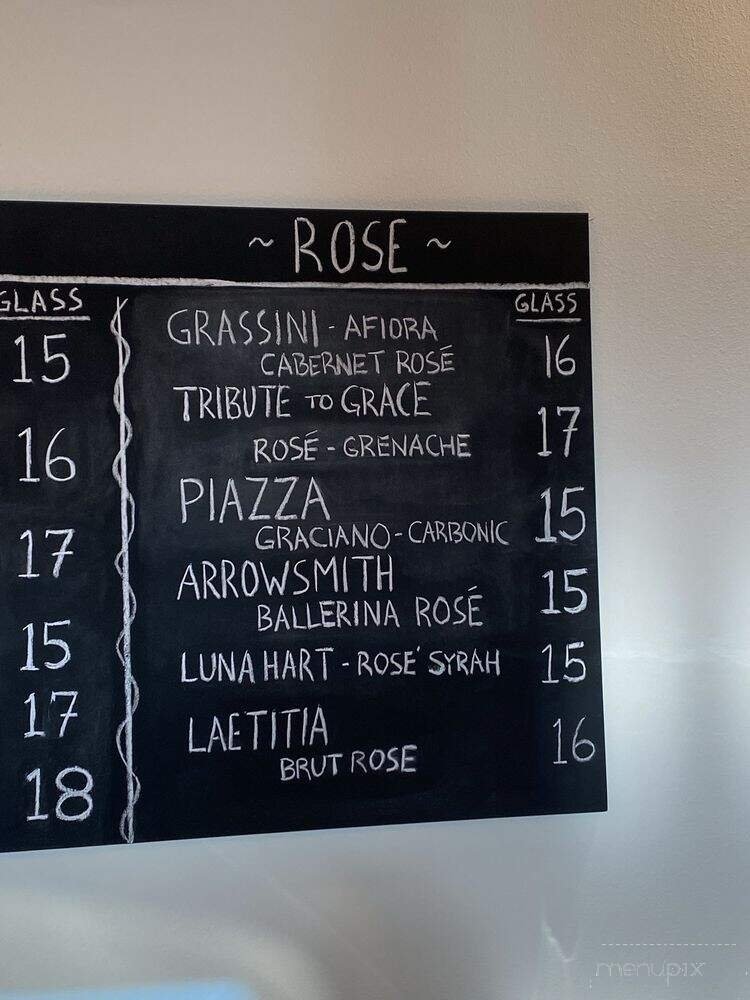 ~ ROSE ~
GLASS
15
16
17
15
17
18
GLASS
GRASSINI - AFIORA
CABERNET ROSÉ 16
TRIBUTE TO GRACE
ROSÉ - GRENACHE 17
PIAZZA
GRACIANO - CARBONIC 15
ARROWSMITH
BALLERINA ROSÉ 15
LUNA HART - ROSÉ SYRAH 15
LAETITIA
BRUT ROSE 16
menupix